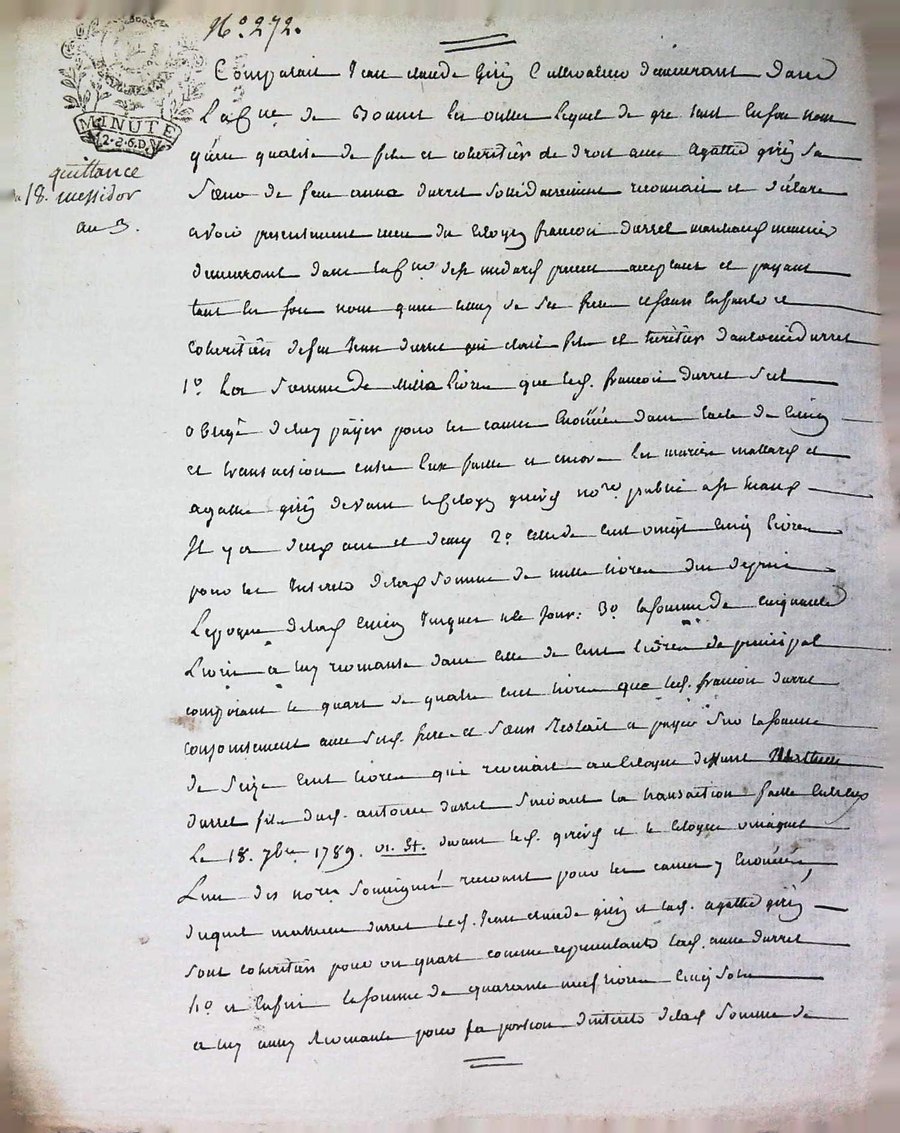 N.º 272.
MINUTE
12.S.6.D.
quittance
du 18. messidor
an 3.
Comparait Jean claude Giréz Cultivateur demeurant dans
La Cne de Bonnet les oulles lequel de gre tant En son nom
qu'en qualité de fils et coheritier de droit avec Agathe giréz sa
Sœur de feue anne durret solidairement reconnait et déclare
avoir presentement recu du Citoyen francois durret marchand meunier
demeurant dans la Cne de st medard present acceptant et payant
tant en son nom qu'en celuy de ses frere et sœurs Enfants et
coheritiers de feu Jean durret qui etait fils et heritier d'antoine durret
1º La Somme de Mille livres que led. francois durret s'est
obligé de luy payer pour les causes Enoncées dans l'acte de
et transaction entre Eux faitte et encore les mariés mollard et
agathe giréz devant le Citoyen no.re public a st
Il y a deux ans et demy 2º Celle de Cent vingt Cinq livres
pour les Interets de lad. somme de mille livres dus depuis
L'epoque delad. Jusques a ce Jour: 3º la somme de cinquante
Livres a luy revenante dans celle de Cent livres de principal
composant le quart de quatre cent livres que led. francois durret
conjointement avec ses d. frere et sœurs Restait a payer sur la somme
de Seize Cent livres qui revenait au Citoyen deffunt Matthieu
durret fils dud. antoine durret suivant la transaction faitte Entr'eux
Le 18. 7bre 1789. v. st. devant led. et le Citoyen
L'un des no.res soussignés recevant pour les causes y Enoncées,
duquel matthieu durret led. Jean claude giréz et lad. agathe giréz
sont coheritiers pour un quart comme representants lad. anne durret
4º et Enfin la somme de quarante neuf livres Cinq sols
a luy aussy Revenante pour sa portion d'interets de lad. somme de